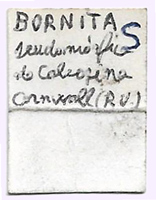 BORNITA S
Seudomórfica
de Calcosina
Cornwall (R.U.)